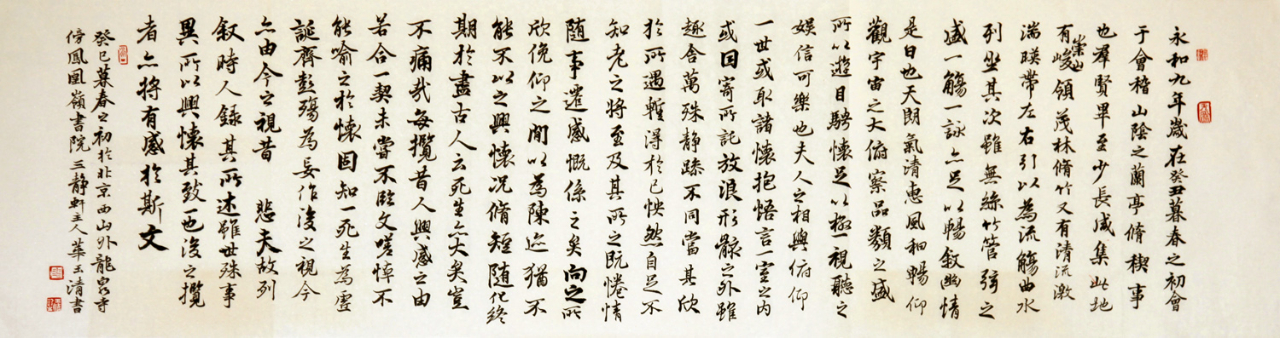 永和九年歲在癸丑暮春之初會
于會稽山陰之蘭亭脩禊事
也羣賢畢至少長咸集此地
有崇山峻領茂林脩竹又有清流激
湍暎帶左右引以為流觴曲水
列坐其次雖無絲竹管弦之
盛一觴一詠亦足以暢叙幽情
是日也天朗氣清惠風和暢仰
觀宇宙之大俯察品類之盛
所以遊目騁懷足以極視聽之
娛信可樂也夫人之相與俯仰
一世或取諸懷抱悟言一室之內
或因寄所託放浪形骸之外雖
趣舍萬殊靜躁不同當其欣
於所遇暫得於己怏然自足不
知老之將至及其所之既惓情
隨事遷感慨係之矣向之所
欣俛仰之閒以為陳迹猶不
能不以之興懷況脩短隨化終
期於盡古人云死生亦大矣豈
不痛哉每攬昔人興感之由
若合一契未嘗不臨文嗟悼不
能喻之於懷固知一死生為虛
誕齊彭殤為妄作後之視今
亦由今之視昔 悲夫故列
叙時人錄其所述雖世殊事
異所以興懷其致一也後之攬
者亦將有感於斯文
癸巳暮春之初於北京西山外龍泉寺
傍鳳凰嶺書院三靜軒主人華玉清書